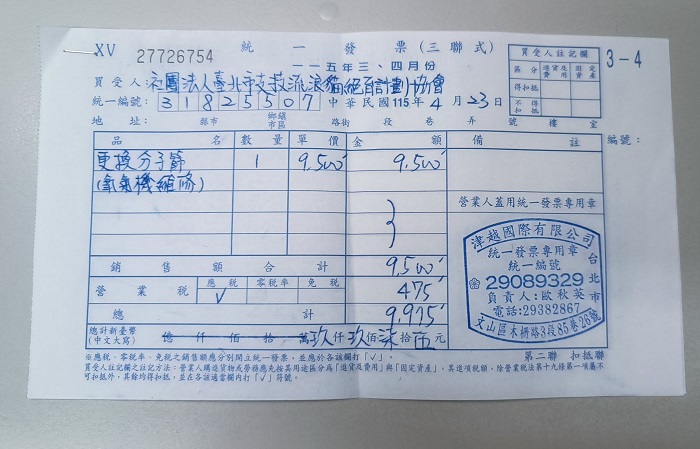 XV 27726754
統一發票(三聯式)
一一五年三、四月份
3-4
買受人註記欄
區分 進貨及費用 固定資產
得扣抵
不得扣抵
買受人: 社團法人臺北市支援流浪貓絕育計劃協會
統一編號: 31825507 中華民國115年4月23日
地址: 縣市 鄉鎮市區 路街 段 巷 弄 號 樓 室
品名 數量 單價 金額 備註 編號:
更換分子篩 1 9,500 9,500
(氧氣機維修)
營業人蓋用統一發票專用章
銷售額合計 9,500
營業稅 應稅 ✓ 零稅率 免稅 475
總計 9,975
總計新臺幣(中文大寫) 億 仟 佰 拾 萬 玖仟 玖佰 柒拾 伍元
津越國際有限公司
統一發票專用章
統一編號
29089329
負責人:歐秋英
電話:29382867
台北市
文山區木柵路3段85巷26號
※應稅、零稅率、免稅之銷售額應分別開立統一發票,並應於各該欄打「✓」。
第二聯 扣抵聯
買受人註記欄之註記方法:營業人購進貨物或勞務應先按其用途區分為「進貨及費用」與「固定資產」,其進項稅額,除營業稅法第十九條第一項屬不
可扣抵外,其餘均得扣抵,並在各該適當欄內打「✓」符號。